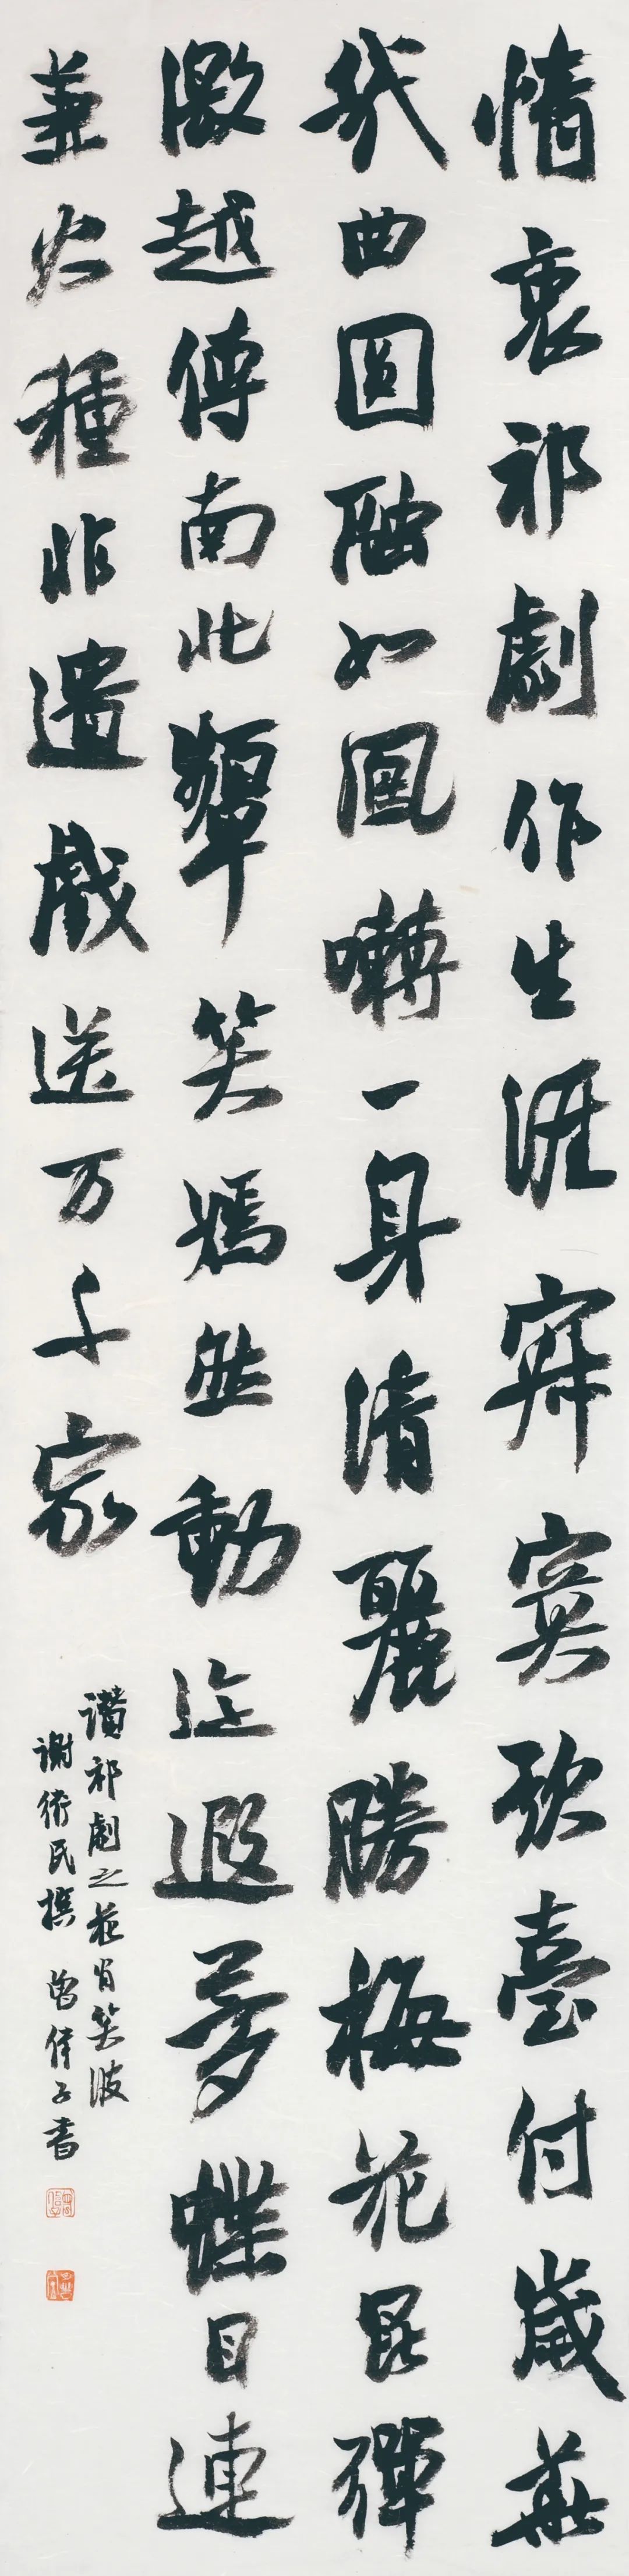 情衷祁劇作生涯寂寞歌臺付歲華
幾曲圓融如鳳囀一身清麗勝梅花昆彈
激越傳南北顰笑嫣然動迩遐夢蝶目連
兼火種非遺戲送万千家
讚祁劇之花肖笑波
謝民撰 曾子書